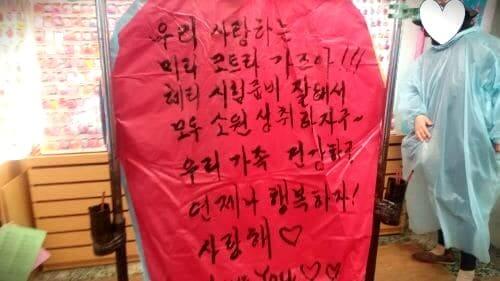 우리 사랑하는
미리 로트라 가즈아!!!
혜리 시험준비 잘돼서
모두 소원 성취하자구~
우리 가족 건강하구
언제나 행복하자!
사랑해♡
You♡♡